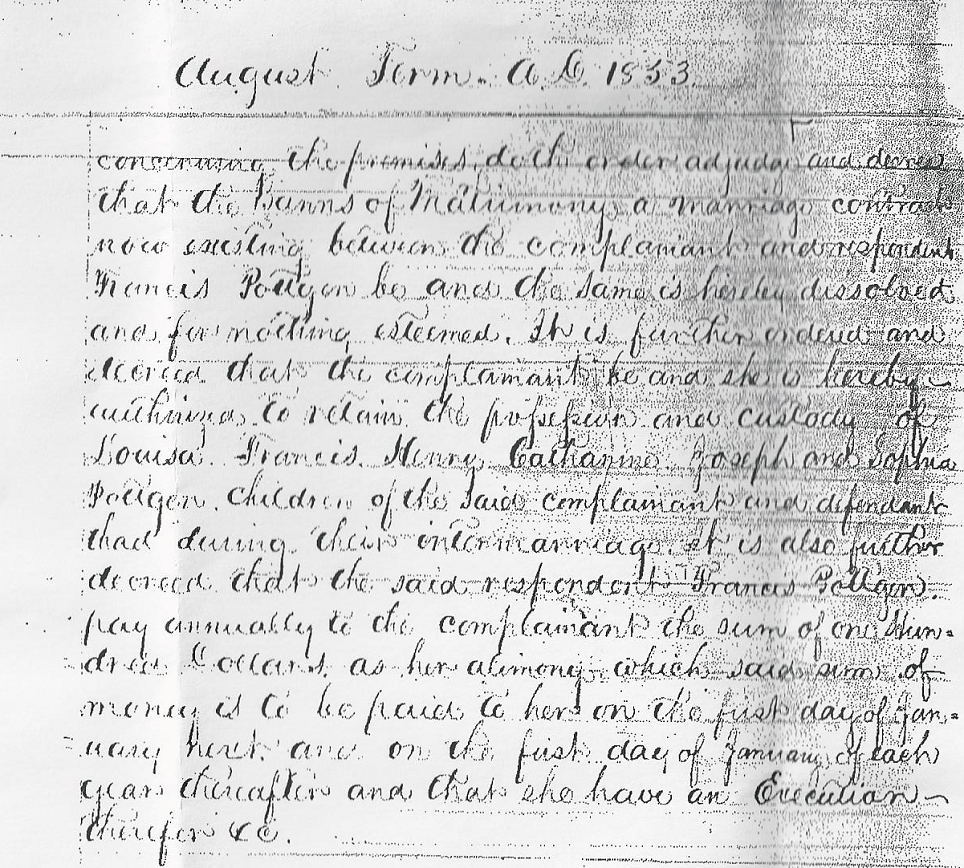 August Term. A.D. 1853.
concerning the premises, doth order adjudge and decree
that the Banns of Matrimony, a marriage contract
now existing between the complainant and respondent
Francis Pottgen be and the same is hereby dissolved
and for nothing esteemed. It is further ordered and
decreed that the complainant be and she is hereby
authorized to retain the possession and custody of
Louisa. Francis. Henry. Catharine. Joseph and Sophia
Pottgen. Children of the said complainant and defendant
had during their intermarriage. It is also further
decreed that the said respondent Francis Pottgen.
pay annually to the complainant the sum of one Hun=
dred Dollars. as her alimony which said sum of
money is to be paid to her on the first day of Jan=
uary next. and on the first day of January of each
year thereafter and that she have an Execution
therefor &c.